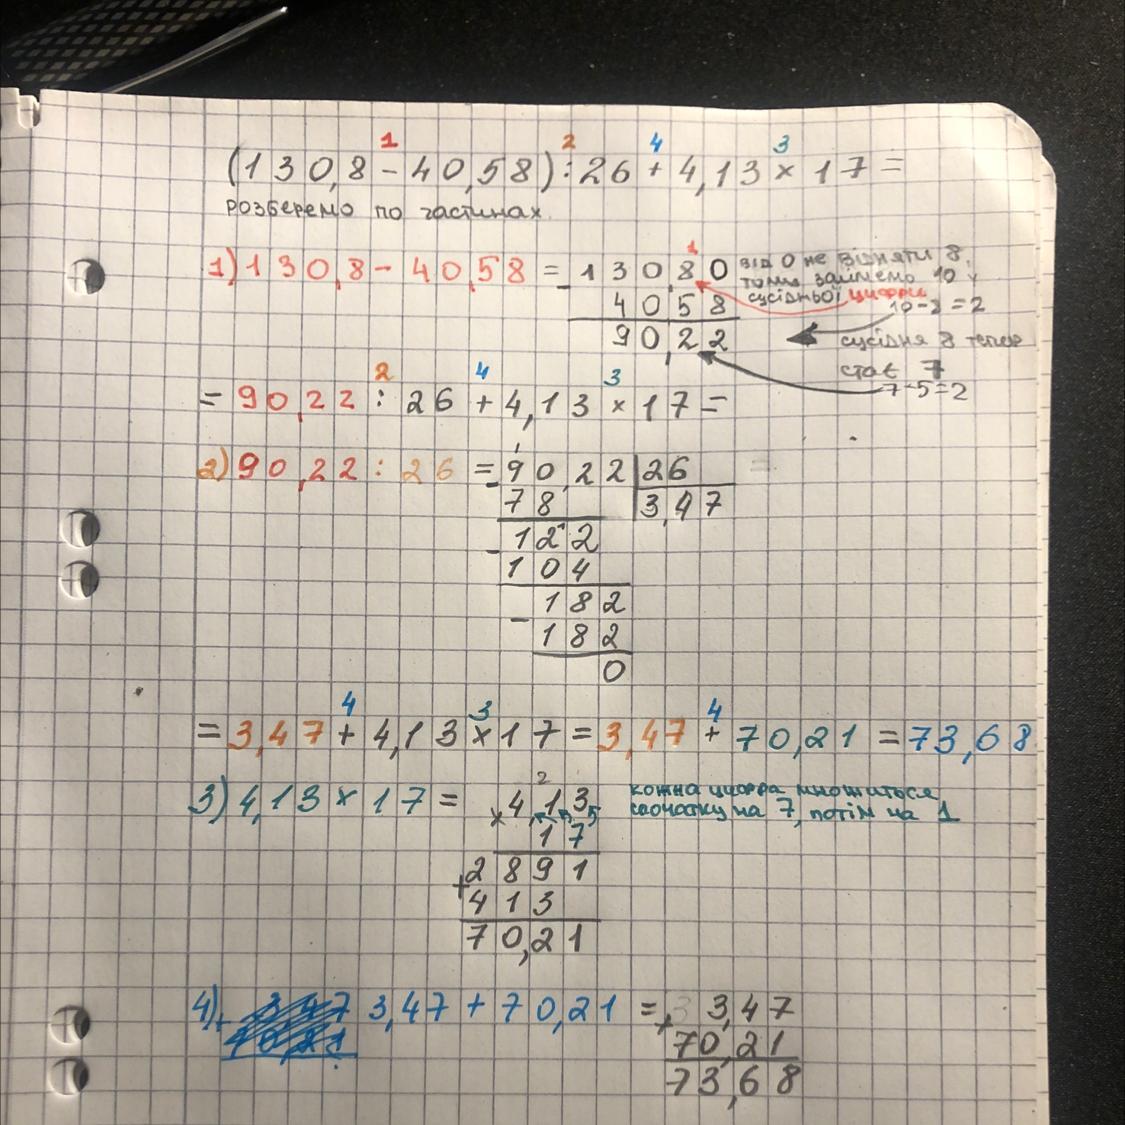 1 2 4 3
(130,8 - 40,58) : 26 + 4,13 × 17 =
розберемо по частинах.
1) 130,8 - 40,58 = 130,80
- 4058
90,22
1
від 0 не відняти 8,
тому займемо 10 у
сусідньої цифри
10-8=2
сусідня 8 тепер
стає 7
7-5=2
2 4 3
= 90,22 : 26 + 4,13 × 17 =
2) 90,22 : 26 = 90,22 26
- 78 3,47
- 122
104
- 182
182
0
4 3 4
= 3,47 + 4,13 × 17 = 3,47 + 70,21 = 73,68
3) 4,13 × 17 = × 4,13
2
17
2891
+ 413
70,21
кожна цифра множиться
спочатку на 7, потім на 1
4) 3,47 + 70,21 = 3,47
+ 70,21
73,68